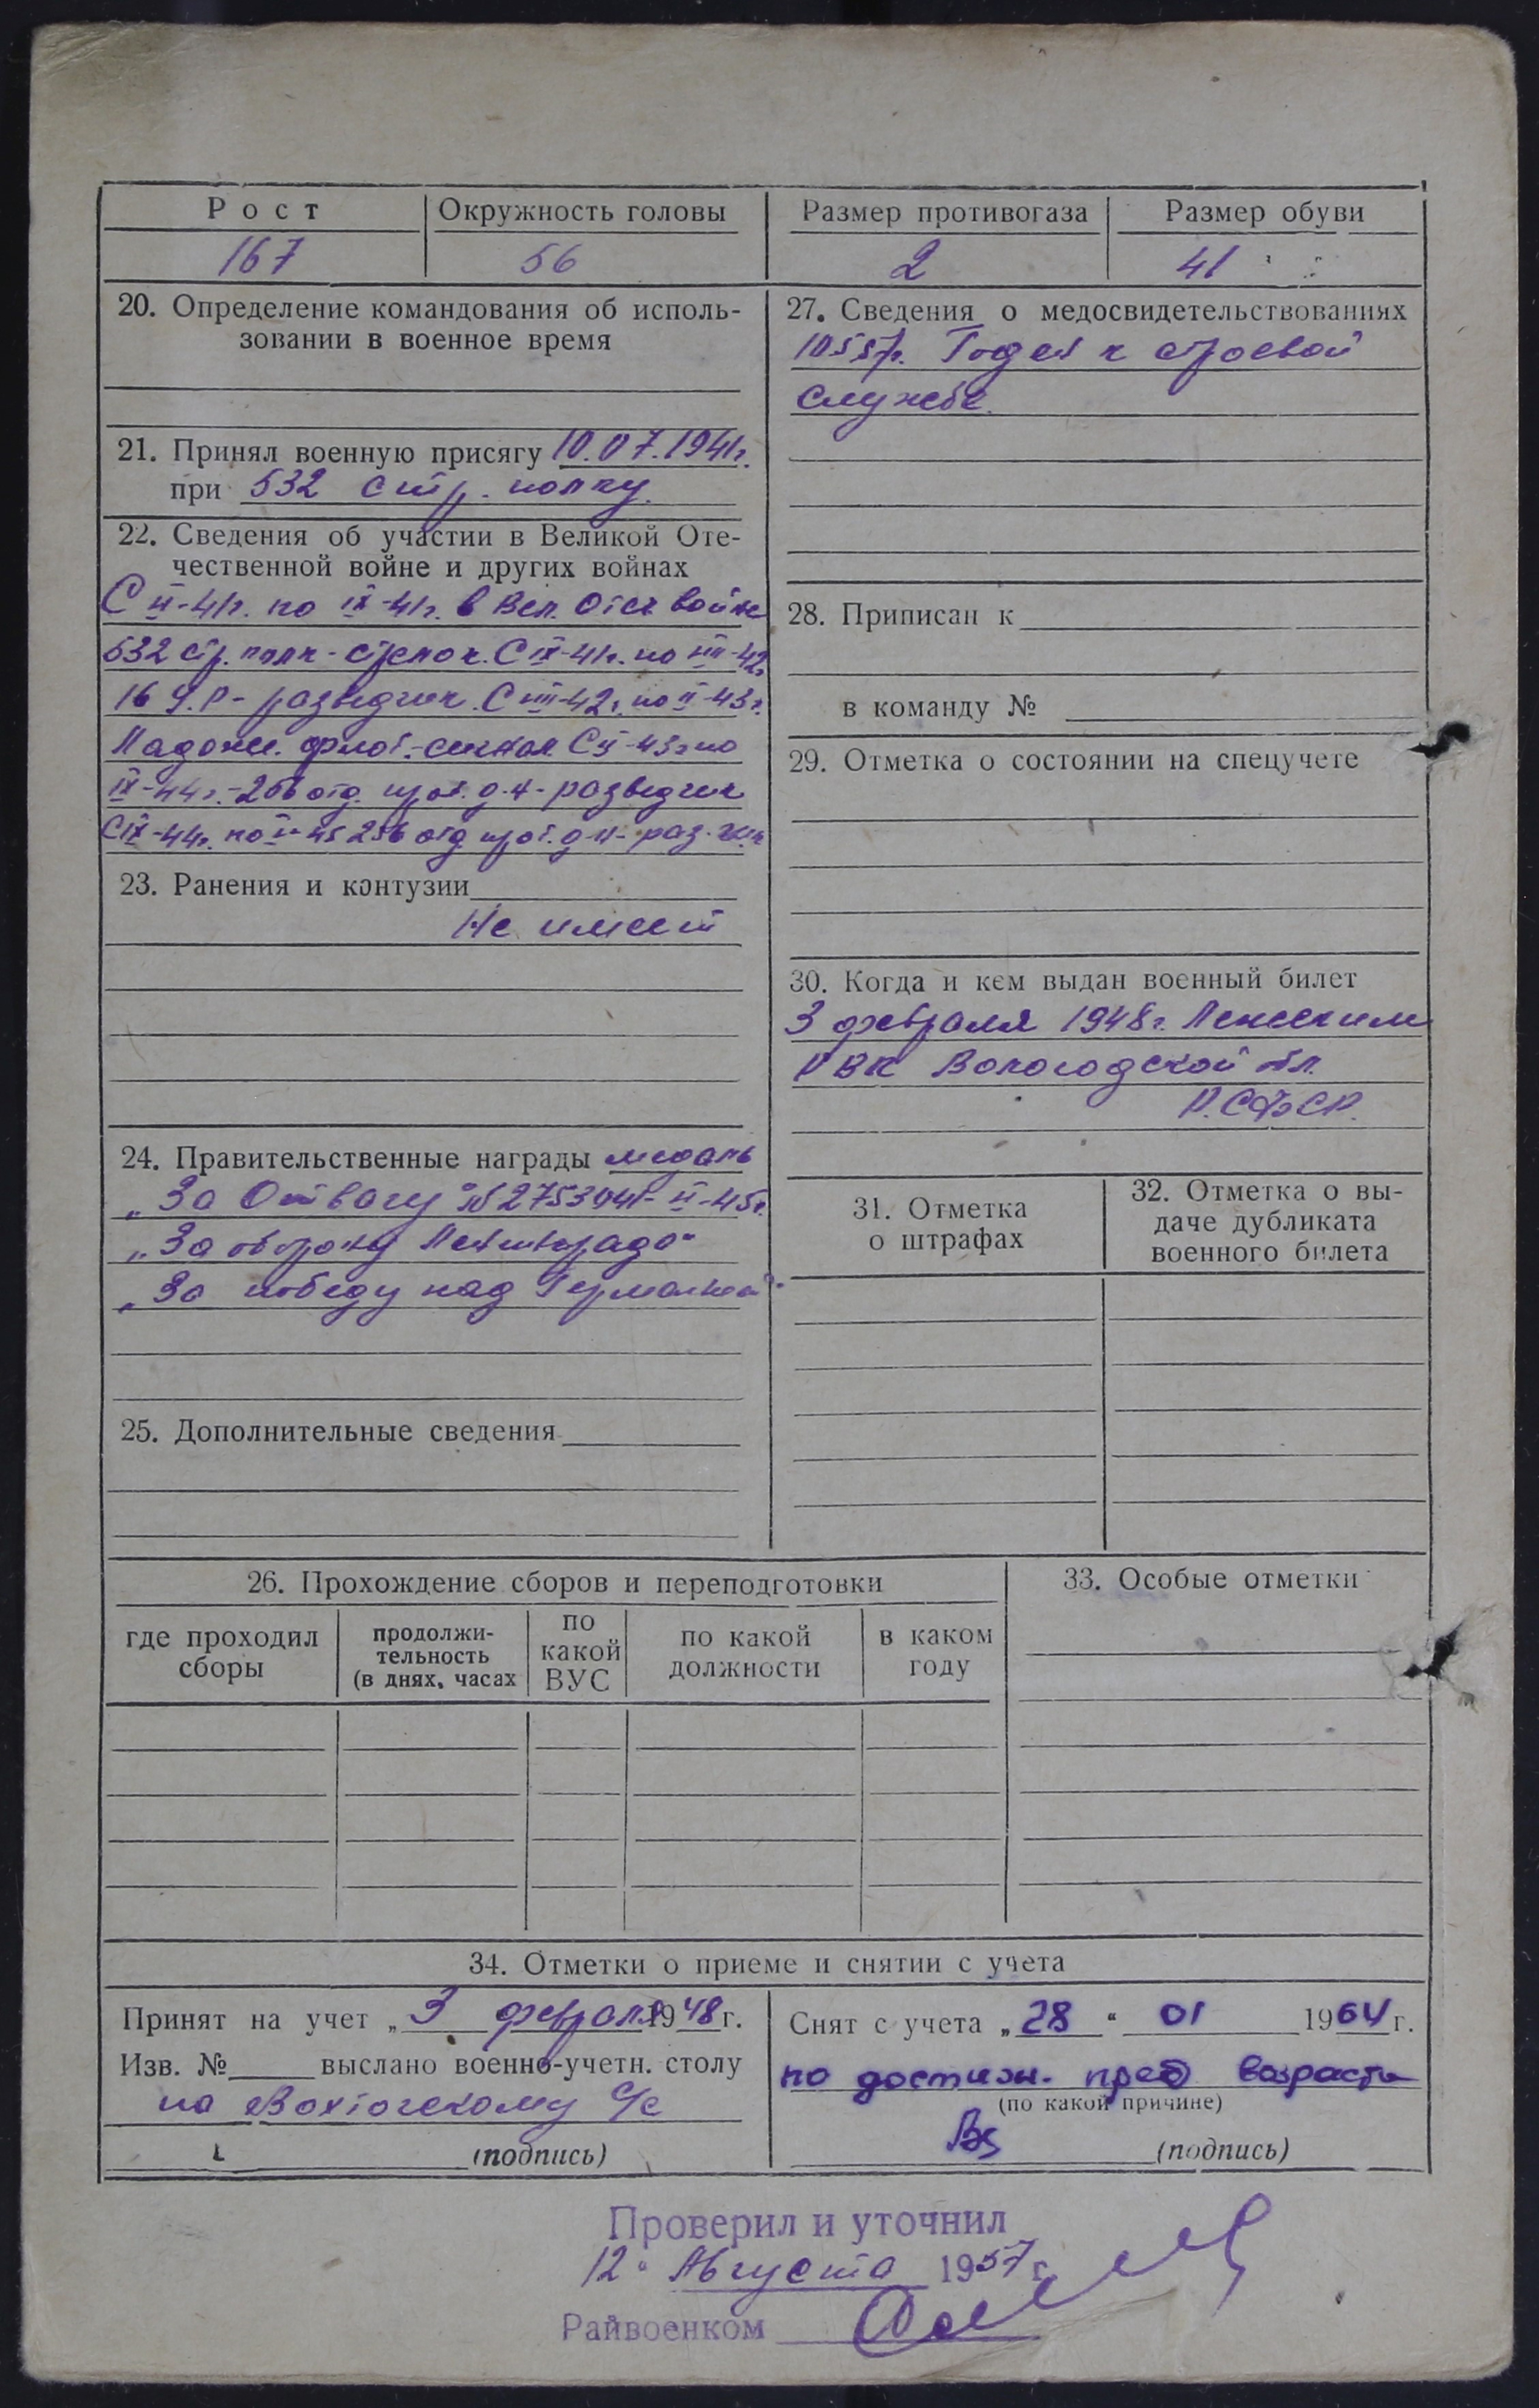 Рост
Окружность головы
Размер противогаза
Размер обуви
167
56
2
41
20. Определение командования об исполь-
зовании в военное время
21. Принял военную присягу 10.07.1941г.
при 532 стр. полку.
22. Сведения об участии в Великой Оте-
чественной войне и других войнах
по IX-41г. в Вел. Отеч войне
532 стр. полк - стрелок. С IX-41г. по
16 - разведчик. С VIII-42г. по II-43г.
Ладожс. флот. - сигнал. С II-43г по
IX-44г. - 256 отд. прот. д-н - разведчик
С IX-44г. по 45 256 отд прот. д-н - раз-чик
23. Ранения и контузии
Не имеет
24. Правительственные награды медаль
„За Отвагу" № II-45г.
„За оборону Ленинграда"
„За победу над Германией".
25. Дополнительные сведения
26. Прохождение сборов и переподготовки
где проходил
сборы
продолжи-
тельность
(в днях, часах
по
какой
ВУС
по какой
должности
в каком
году
27. Сведения о медосвидетельствованиях
Годен к строевой
службе.
28. Приписан к
в команду №
29. Отметка о состоянии на спецучете
30. Когда и кем выдан военный билет
3 февраля 1948г.
РВК Вологодской обл.
Р.СФСР.
31. Отметка
о штрафах
32. Отметка о вы-
даче дубликата
военного билета
33. Особые отметки
34. Отметки о приеме и снятии с учета
Принят на учет „3 февраля 1948 г.
Изв. № выслано военно-учетн. столу
по Вохтогскому с/с
(подпись)
Снят с учета „28" 01 1964 г.
по достиж. пред возраста
(по какой причине)
(подпись)
Проверил и уточнил
12" Августа 1957 г.
Райвоенком